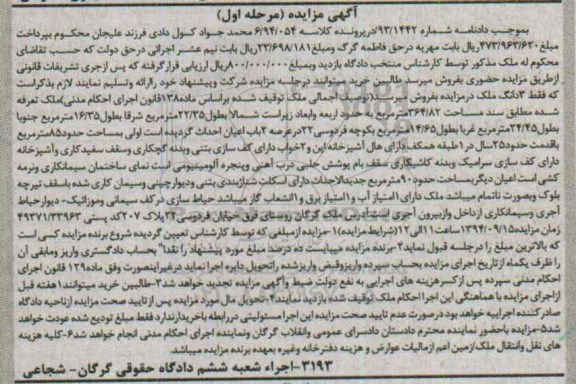 آگهی مزایده (مرحله اول)
بموجب دادنامه شماره ۹۳/۱۴۴۲درپرونده کلاسه ۶/۹۴/۰۵۴ محمد جواد کول دادی فرزند علیجان محکوم بپرداخت
مبلغ۴۷۳/۹۶۳/۶۳۰ریال بابت مهریه درحق فاطمه گرگ ومبلغ۲۳/۶۹۸/۱۸۱ریال بابت نیم عشر اجرائی درحق دولت که حسب تقاضای
محکوم له ملک مذکور توسط کارشناس منتخب دادگاه بازدید وبمبلغ۸۰۰/۰۰۰/۰۰۰ریال ارزیابی قرارگرفته که پس ازجری تشریفات قانونی
ازطریق مزایده حضوری بفروش میرسد طالبین خرید میتوانند درجلسه مزایده شرکت وپیشنهاد خود راارائه وتسلیم نمایند لازم بذکراست
که فقط ۳دانگ ملک درمزایده بفروش میرسد(توصیف اجمالی ملک توقیف شده براساس ماده۱۳۸قانون اجرای احکام مدنی)ملک تعرفه
شده مطابق سند مساحت ۳۶۴/۸۲مترمربع به حدود اربعه وابعاد زیراست شمالا بطول۲۲/۳۵مترمربع شرقا بطول۱۶/۳۵مترمربع جنوبا
بطول۲۴/۴۵مترمربع غربا بطول۱۴/۶۵مترمربع بکوچه فردوسی۲۲درعرصه ۲باب اعیان احداث گردیده است اولی بمساحت حدود۸۵مترمربع
باقدمت حدود۲۵سال در۱طبقه همکف دارای هال آشپزخانه اپن و۲خواب دارای کف سازی بتنی وبدنه گچکاری وسقف سفیدکاری وآشپزخانه
دارای کف سازی سرامیک وبدنه کاشیکاری سقف بام پوشش حلبی درب آهنی وپنجره آلومینیومی است نمای ساختمان سیمانکاری ونرمه
کشی است اعیان دیگربمساحت حدود۹۰مترمربع جدیدالاحداث دارای اسکلت شنازبندی بتنی ودیوارچینی وسیمان کاری شده باسقف تیرچه
بلوک وبصورت ناتمام میباشد ملک دارای۱امتیاز آب و۱امتیاز برق و۱انشعاب گاز میباشد حیاط سازی درکف سیمانی وموزائیک- دیوارحیاط
آجری وسیمانکاری ازداخل وازبیرون آجری است آدرس ملک گرگان روستای قرق خیابان فردوسی۲۲پلاک ۲۰۷کد پستی ۴۹۳۷۱/۳۳۹۶۳
زمان مزایده۱۳۹۴/۰۹/۱۵ساعت۱۱الی۱۲(شرایط مزایده)۱-مزایده ازمبلغی که توسط کارشناس تعیین گردیده شروع برنده مزایده کسی است
که بالاترین مبلغ را درجلسه قبول نماید۲-برنده مزایده میبایست ده درصد مبلغ مورد پیشنهاد را نقدا" بحساب دادگستری واریز ومابقی آن
را ظرف یکماه ازتاریخ اجرای مزایده بحساب سپرده واریزوقبض واریزشده راتحویل دایره اجرا نماید درغیراینصورت وفق ماده۱۲۹ قانون اجرای
احکام مدنی سپرده پس ازکسرهزینه های اجرایی به نفع دولت ضبط وآگهی مزایده تجدید خواهد شد۳-طالبین خرید میتوانند۱هفته قبل
ازاجرای مزایده با هماهنگی این اجرااحکام ملک توقیف شده بازدید نمایند۴-تحویل مال مورد مزایده پس ازتایید صحت مزایده ازناحیه دادگاه
صادرکننده اجراییه خواهد بود درصورت عدم تایید صحت مزایده این اجرا مسئولیتی دررابطه باخریدارندارد فقط مبلغ تودیع شده عودت خواهد
شد۵-مزایده باحضور نماینده محترم دادستان دادسرای عمومی وانقلاب گرگان ونماینده اجرای احکام مدنی انجام خواهد شد۶-کلیه هزینه
های نقل وانتقال ملک/زمین اعم ازمالیات عوارض و هزینه دفترخانه وغیره بعهده برنده مزایده میباشد.
۳۱۹۳-اجراء شعبه ششم دادگاه حقوقی گرگان - شجاعی